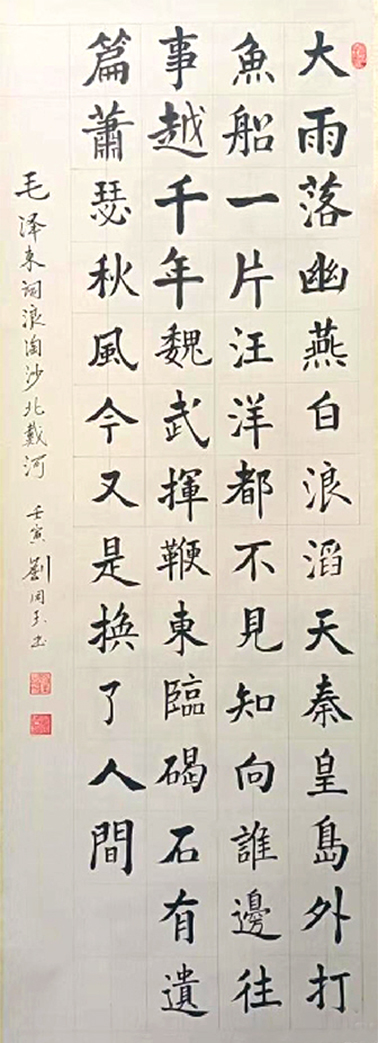 大雨落幽燕白浪滔天秦皇島外打
魚船一片汪洋都不見知向誰邊往
事越千年魏武揮鞭東臨碣石有遺
篇蕭瑟秋風今又是換了人間
毛泽东词浪淘沙北戴河 壬寅劉同玉书